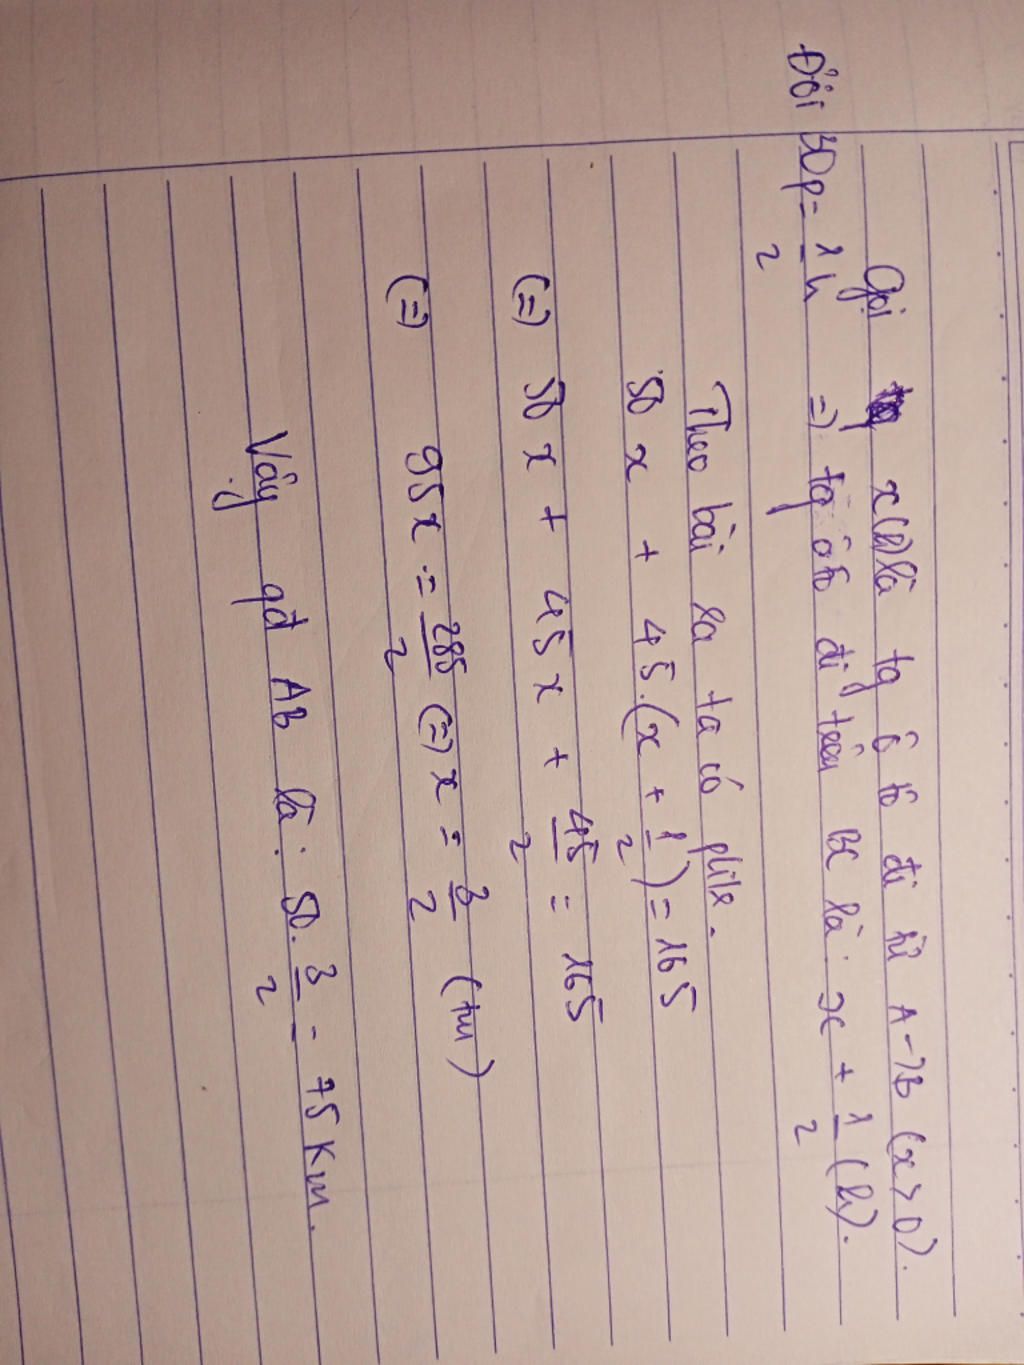 Gọi x(h) là tg ô tô đi từ A->B (x>0).
Đổi 30p = 1/2 h => tg ôtô đi trên BC là: x + 1/2 (h).
Theo bài ra ta có ptr.
50x + 45.(x + 1/2) = 165
(=) 50x + 45x + 45/2 = 165
(=) 95x = 285/2 (=) x = 3/2 (tm)
Vậy qđ AB là: 50. 3/2 = 75 Km.